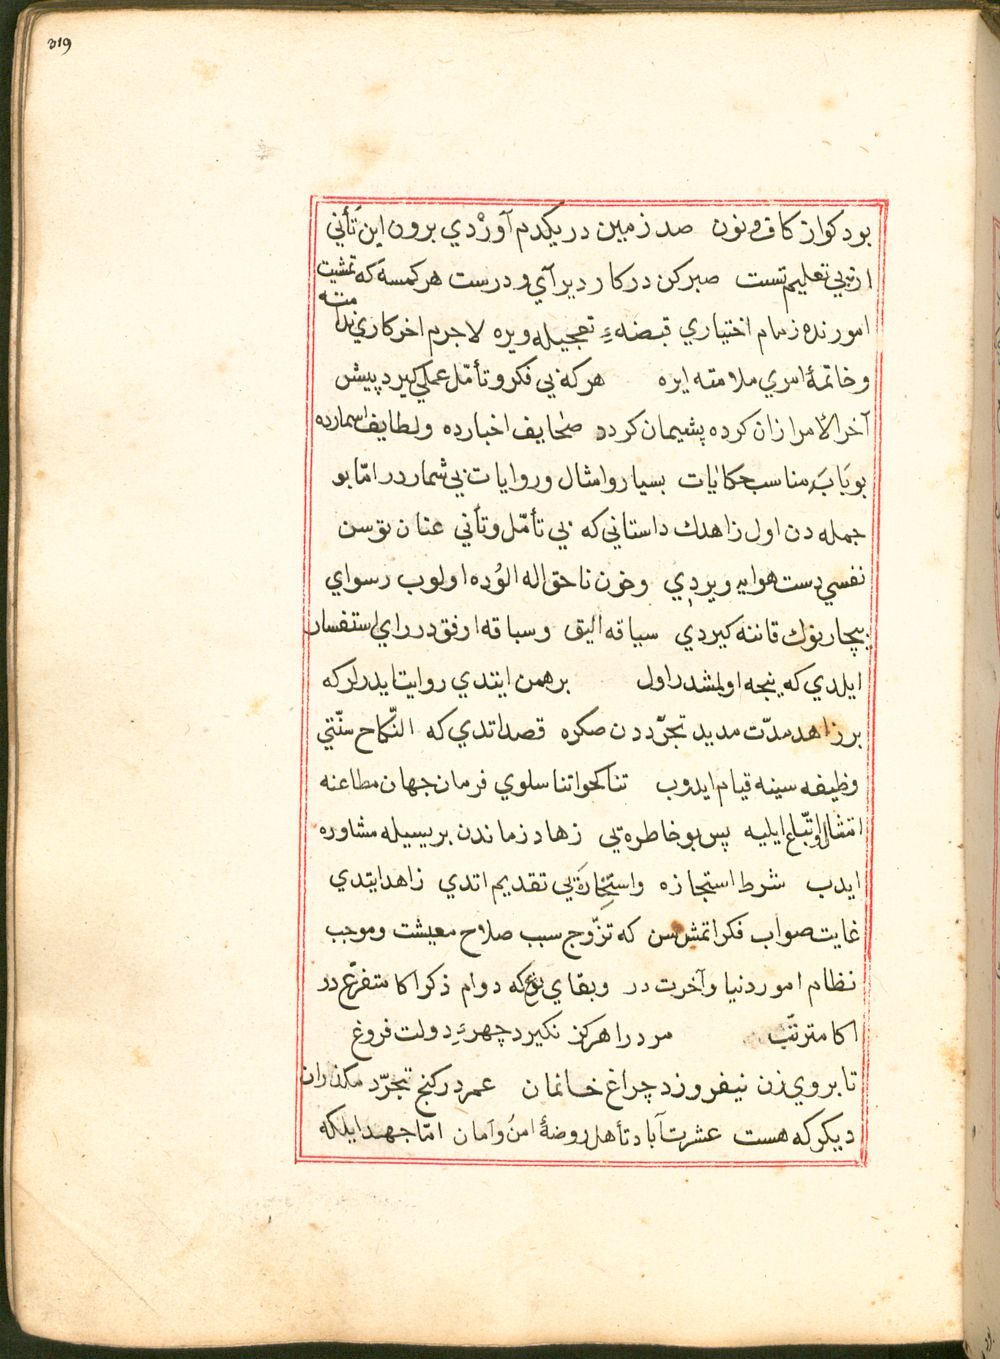 319
بود كواز كاف ونون صد زمين در يكدم آوزْدي برون اين تَأني
از پي تعليم تست صبر كن در كار دير آي و درست هر كمسه كه تمشيت
امورنده زمام اختياري قبضهٴ تعجيله ويره لاجرم اخر كاري ندامته
وخاتمهٔ امري ملامته ايره هر كه بي فكر وتأمّل عملي كيرد پيش
آخر الأمر ازان كرده پشيمان كردد صحايف اخبارده ولطايف اسمارده
بو بابَه مناسب حكايات بسيار وامثال وروايات بي شماردر امّا بو
جمله دن اول زاهدك داستاني كه بي تأمّل وتأني عنان توسن
نفسي دست هوايه ويردي وخون ناحق اله الوُده اولوب رسواي
بيچاره نوك قاننه كيردي سياقه اليق وسباقه اوفقدر راي استفسار
ايلدي كه نيجه اولمشدر اول برهمن ايتدي روايت ايدرلر كه
بر زاهد مدّت مديد تجرّددن صكره قصد اتدي كه النّكاح سنّتي
وظيفه سينه قيام ايدوب تناكحوا تناسلوي فرمان جهان مطاعنه
امتثال واتبّاع ايليه پس بو خاطره يي زهاد زماندن بريسيله مشاوره
ايدب شرط استجازه واستخاره يي تقديم اتدي زاهد ايتدي
غايت صواب فكر اتمش سن كه تزّوج سبب صلاح معيشت وموجب
نظام امور دنيا وآخرت در وبقاي نوع كه دوام ذكر اكا متفرّع در
اكا مترتّب مرد را هركز نكيرد چهرهٴ دولت فروغ
تا بروي زن نيفروزد چراغ خانمان عمر در كنج تجرّد مكذران
ديكر كه هست عشرت آباد تأهل روضهٔ امنُ وامان امّا جهد ايله كه